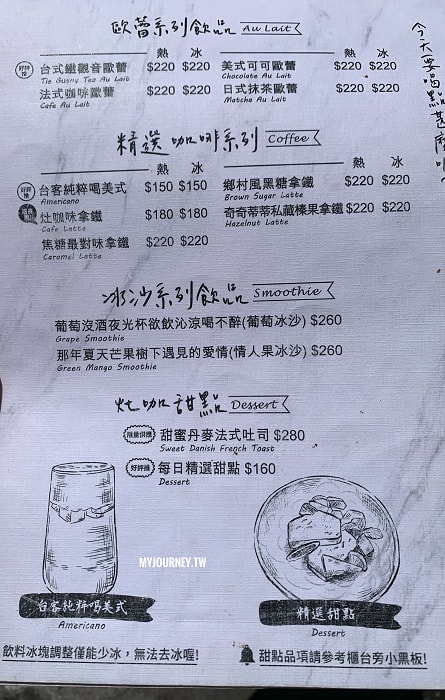 歐蕾系列飲品 Au Lait
熱 冰
好評推 台式鐵觀音歐蕾 $220 $220
Tie Guany Tea Au Lait
法式咖啡歐蕾 $220 $220
Cafe Au Lait
美式可可歐蕾 $220 $220
Chocolate Au Lait
日式抹茶歐蕾 $220 $220
Matcha Au Lait
今天要喝點甚麼
精選咖啡系列 Coffee
熱 冰
好評推 台客純粹喝美式 $150 $150
Americano
灶咖味拿鐵 $180 $180
Cafe Latte
焦糖最對味拿鐵 $220 $220
Caramel Latte
熱 冰
鄉村風黑糖拿鐵 $220 $220
Brown Sugar Latte
奇奇蒂蒂私藏榛果拿鐵 $220 $220
Hazelnut Latte
冰沙系列飲品 Smoothie
葡萄沒酒夜光杯欲飲沁涼喝不醉(葡萄冰沙) $260
Grape Smoothie
那年夏天芒果樹下遇見的愛情(情人果冰沙) $260
Green Mango Smoothie
灶咖甜點 Dessert
限量供應 甜蜜丹麥法式吐司 $280
Sweet Danish French Toast
好評推 每日精選甜點 $160
Dessert
MYJOURNEY.TW
台客純粹喝美式
Americano
精選甜點
Dessert
飲料冰塊調整僅能少冰，無法去冰喔!
甜點品項請參考櫃台旁小黑板!